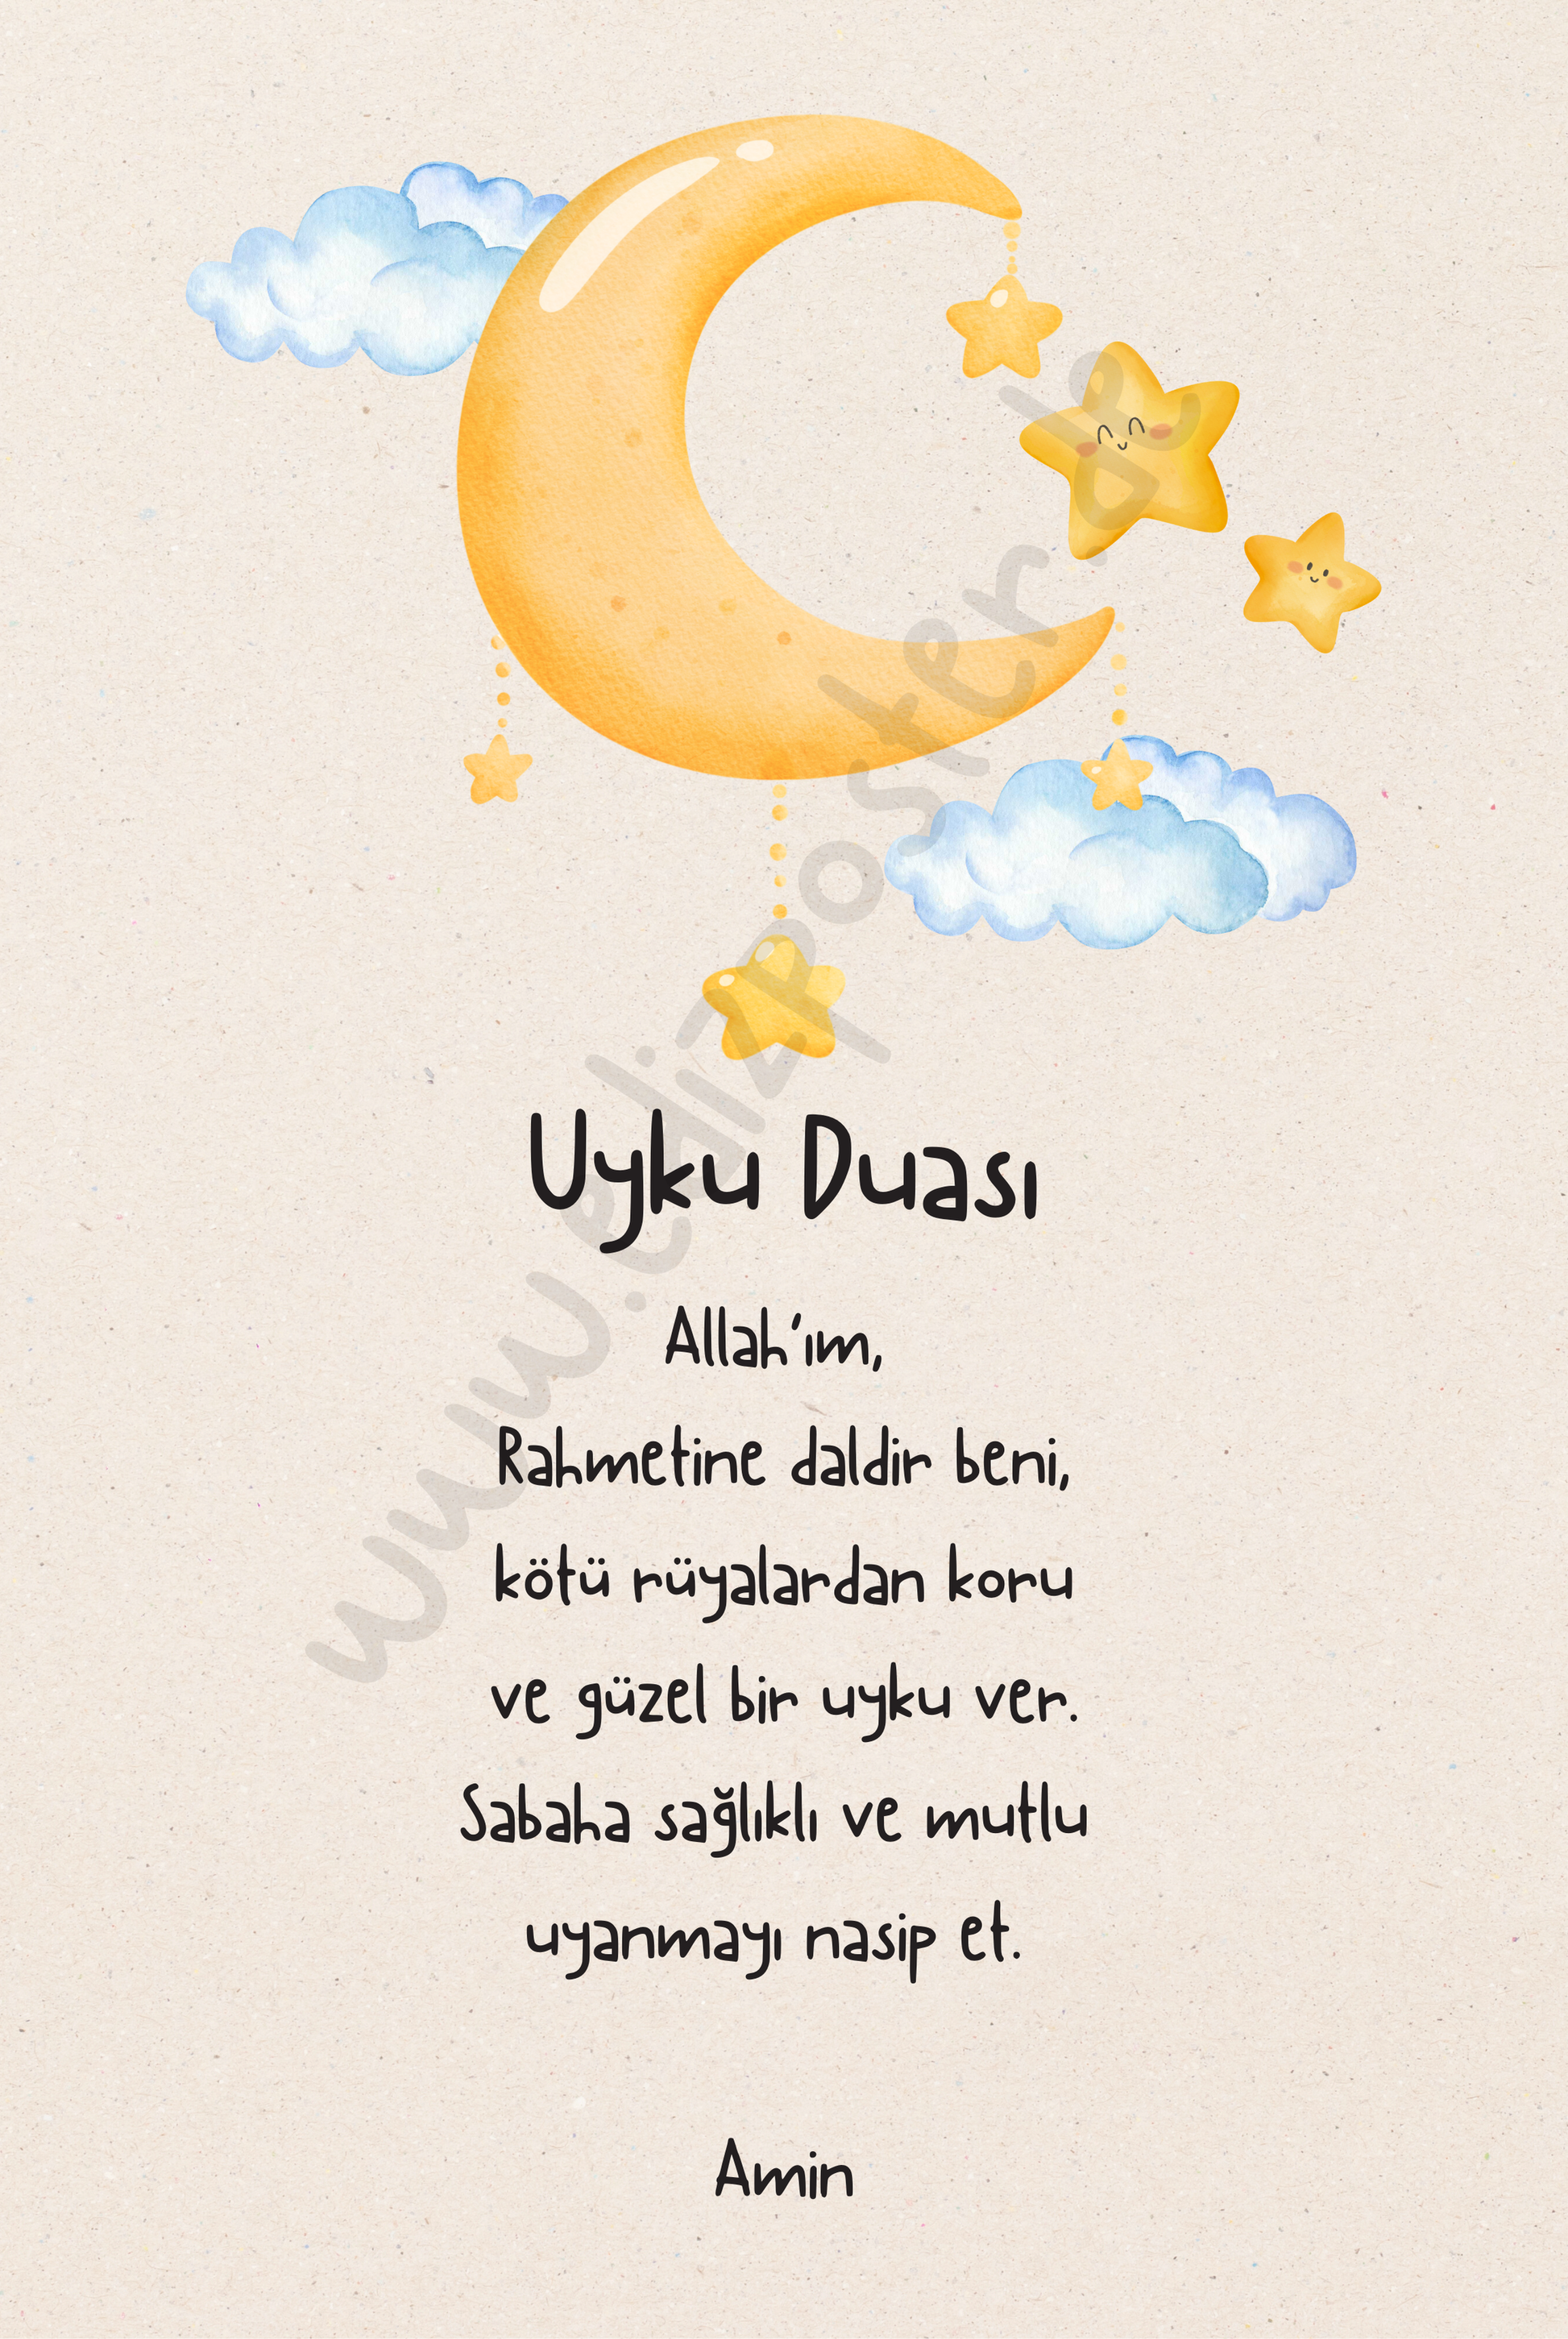 Uyku Duası
Allah'ım,
Rahmetine daldir beni,
kötü rüyalardan koru
ve güzel bir uyku ver.
Sabaha sağlıklı ve mutlu
uyanmayı nasip et.
Amin
www.edizposter.de